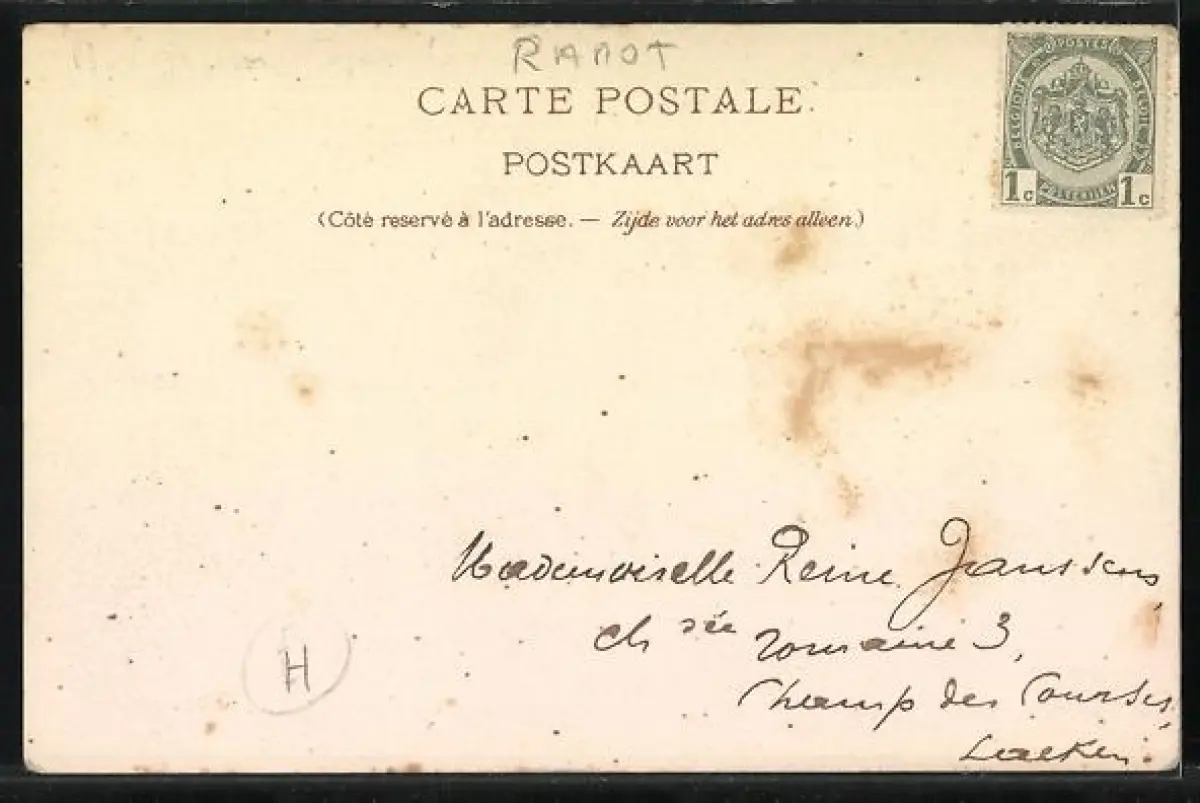 RABOT
CARTE POSTALE.
POSTKAART
(Côté reservé à l'adresse. — Zijde voor het adres alleen.)
POSTES
BELGIQUE
BELGIË
POSTERIJEN
1c 1c
Mademoiselle Reine Janssens,
chsée romaine 3,
Champ des Courses,
Laeken.
H